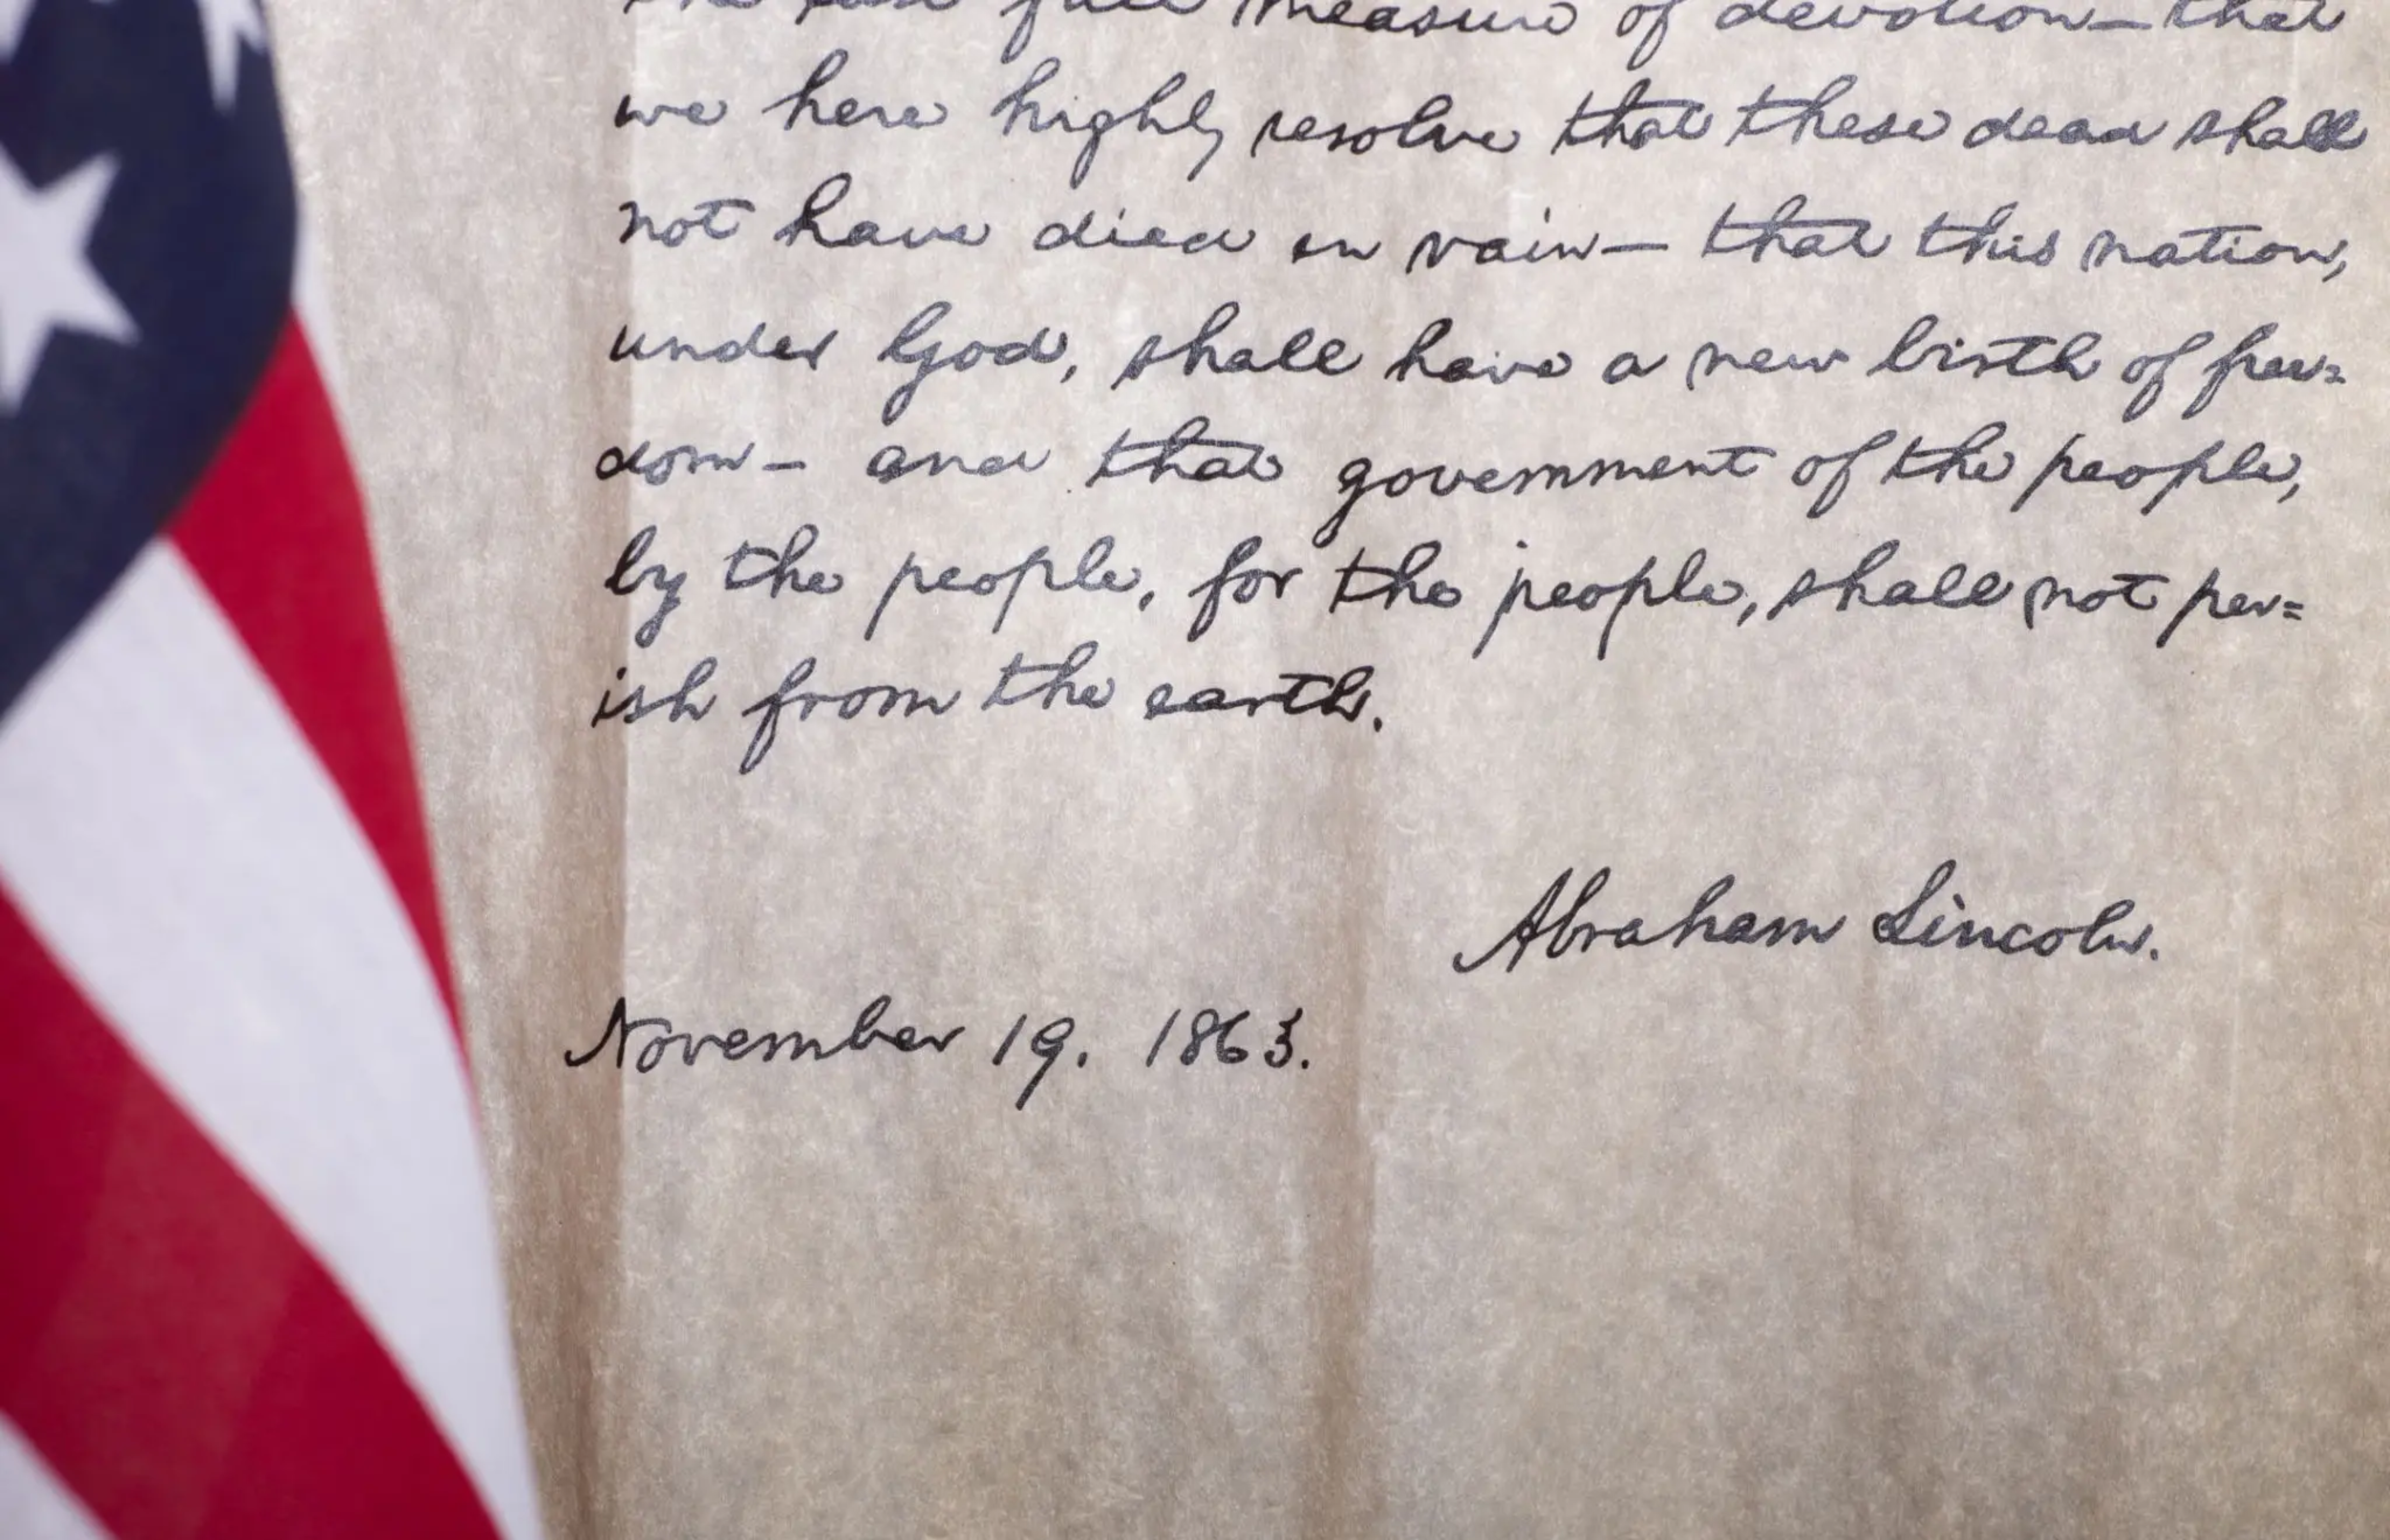 the last full measure of devotion— that
we here highly resolve that these dead shall
not have died in vain— that this nation,
under God, shall have a new birth of free=
dom— and that government of the people,
by the people, for the people, shall not per=
ish from the earth.
Abraham Lincoln.
November 19. 1863.